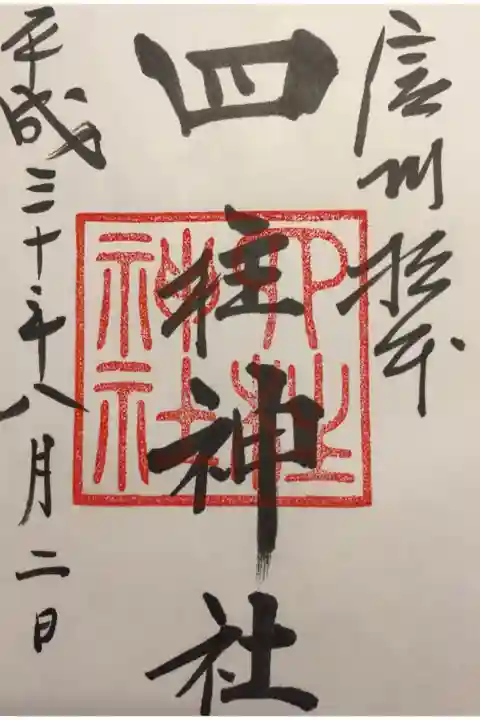 信州松本
四柱神社
四柱
神社
平成三十年八月二日